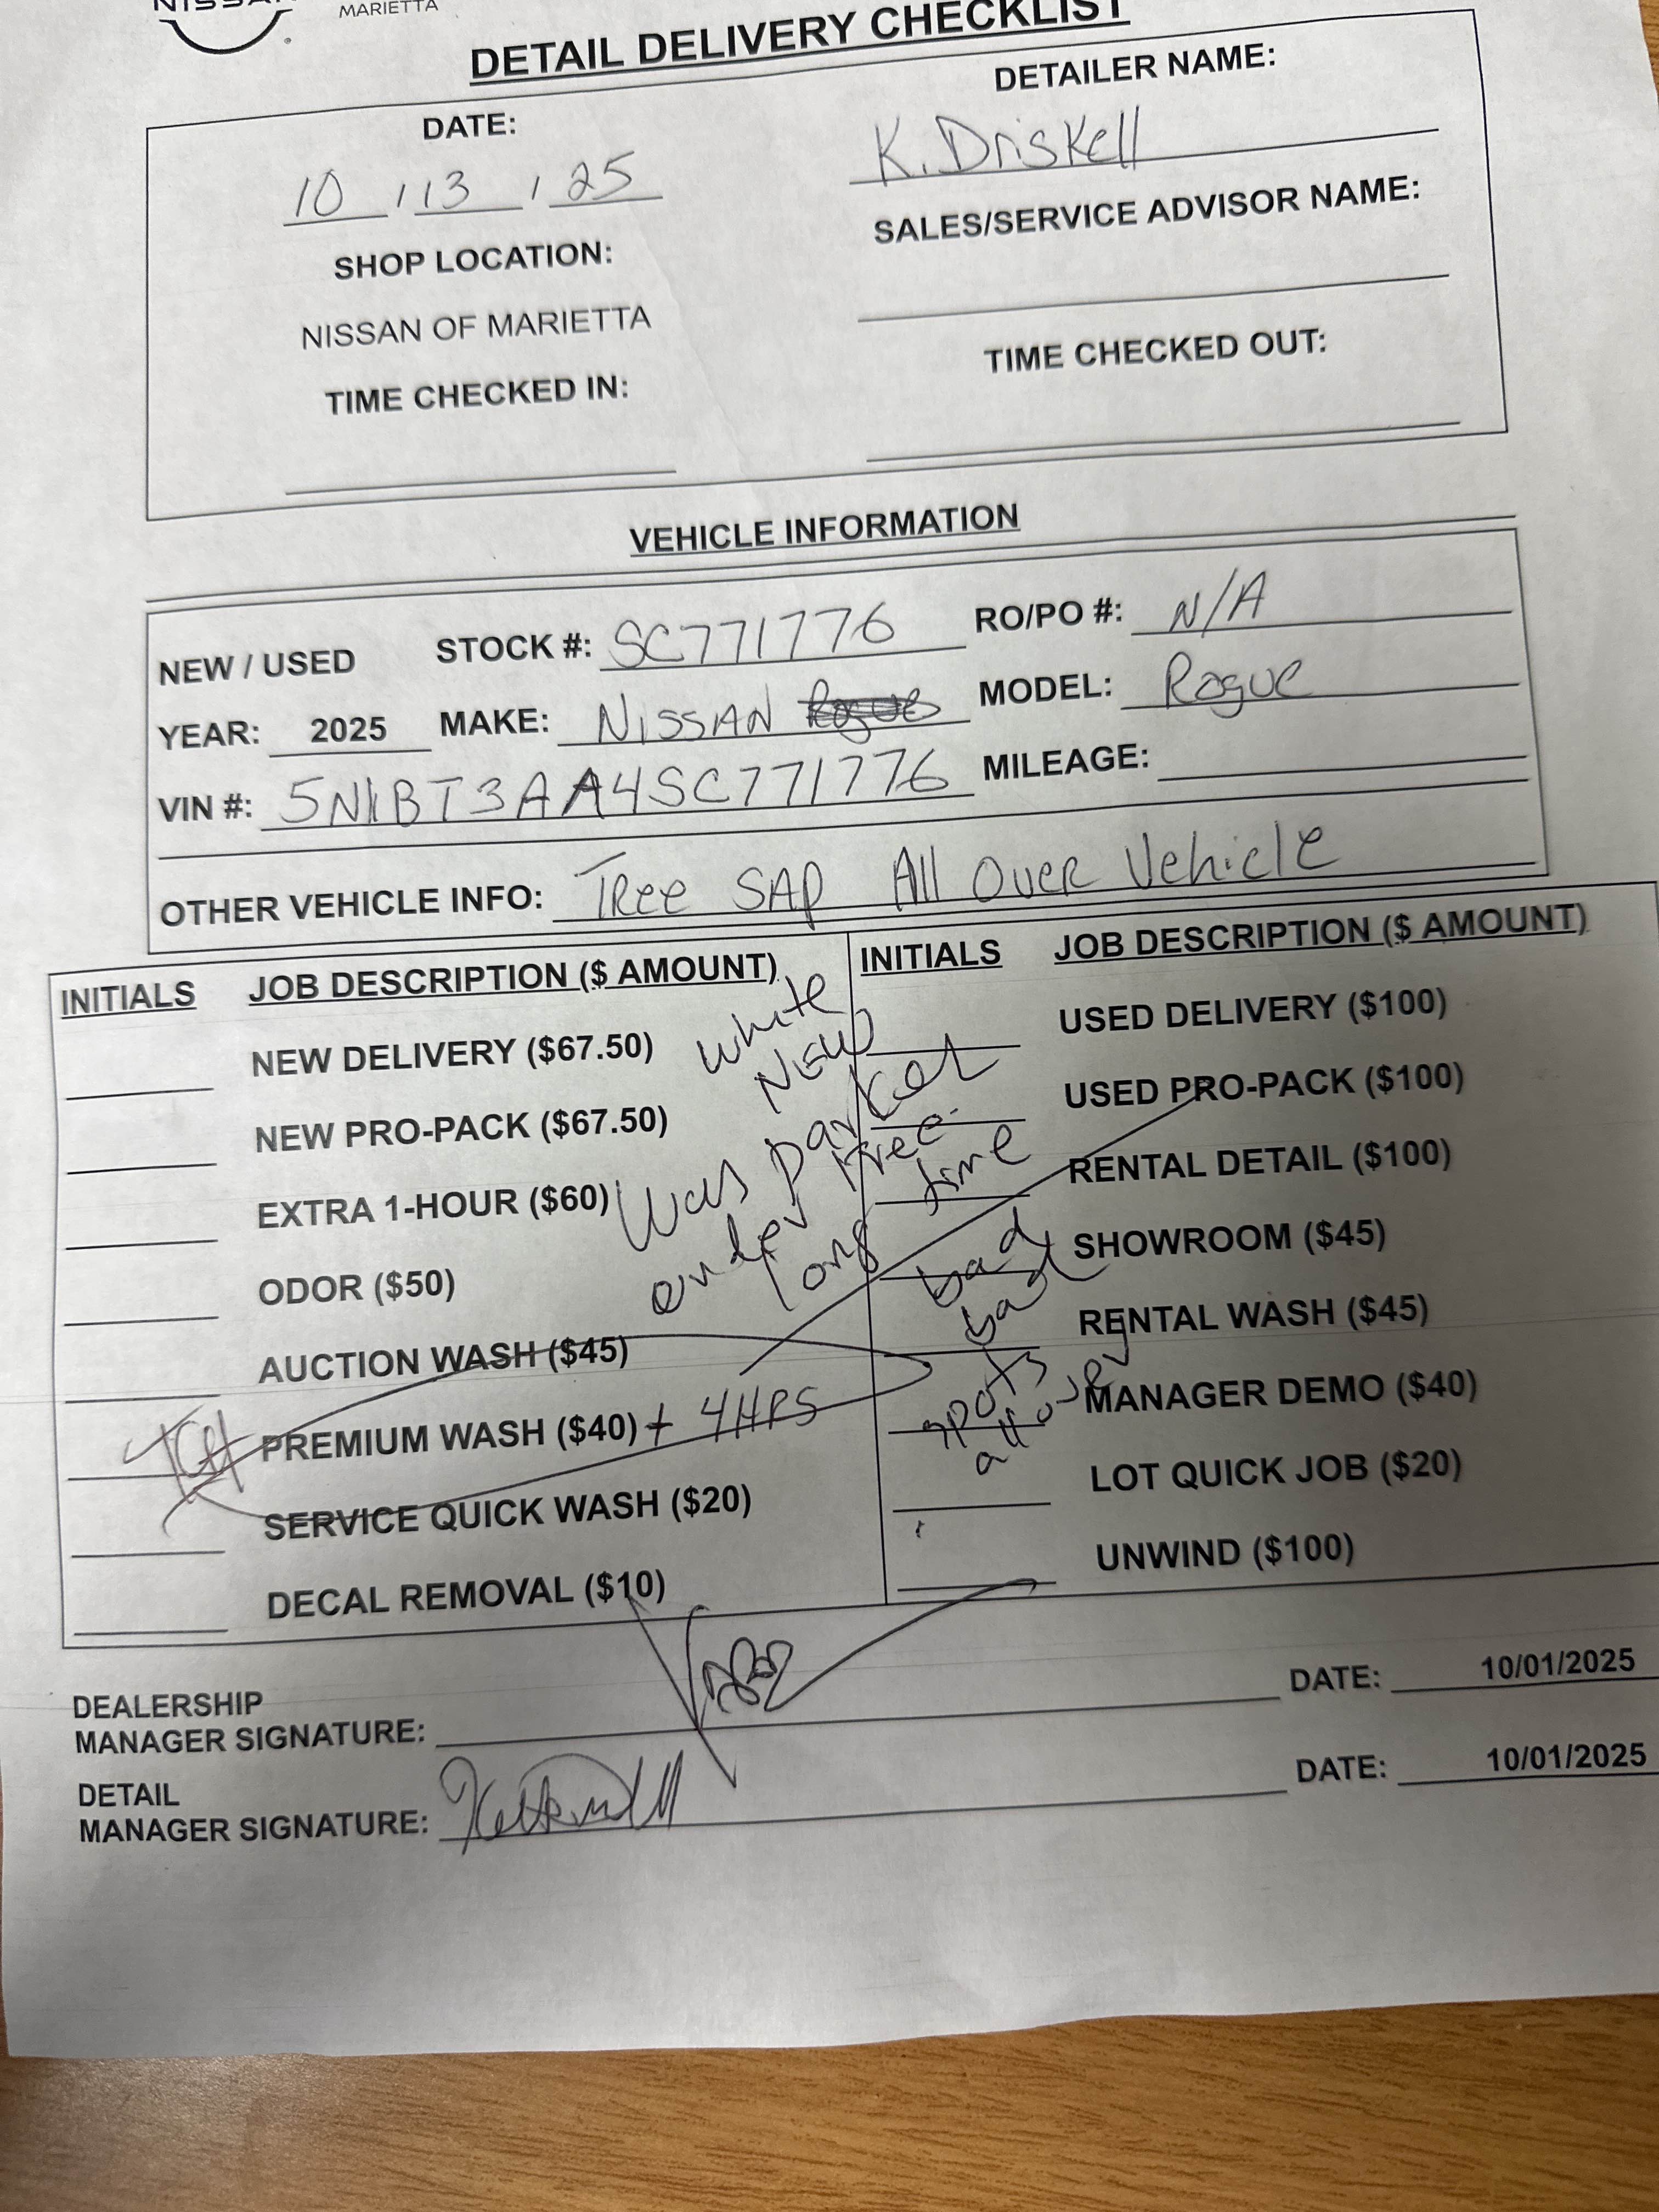 NISSAN
MARIETTA
DETAIL DELIVERY CHECKLIST
DATE:
10 / 13 / 25
DETAILER NAME:
K. Driskell
SHOP LOCATION:
NISSAN OF MARIETTA
SALES/SERVICE ADVISOR NAME:
TIME CHECKED IN:
TIME CHECKED OUT:
VEHICLE INFORMATION
NEW / USED STOCK #: SC771776 RO/PO #: N/A
YEAR: 2025 MAKE: NISSAN Rogue MODEL: Rogue
VIN #: 5N1BT3AA4SC771776 MILEAGE:
OTHER VEHICLE INFO: Tree SAP All Over Vehicle
INITIALS JOB DESCRIPTION ($ AMOUNT)
NEW DELIVERY ($67.50)
NEW PRO-PACK ($67.50)
EXTRA 1-HOUR ($60)
ODOR ($50)
AUCTION WASH ($45)
PREMIUM WASH ($40) + 4HRS
SERVICE QUICK WASH ($20)
DECAL REMOVAL ($10)
white
NEW
Was parked
under tree
long time
bad
bad
spots
all over
INITIALS JOB DESCRIPTION ($ AMOUNT)
USED DELIVERY ($100)
USED PRO-PACK ($100)
RENTAL DETAIL ($100)
SHOWROOM ($45)
RENTAL WASH ($45)
MANAGER DEMO ($40)
LOT QUICK JOB ($20)
UNWIND ($100)
DEALERSHIP
MANAGER SIGNATURE: DATE: 10/01/2025
DETAIL
MANAGER SIGNATURE: DATE: 10/01/2025